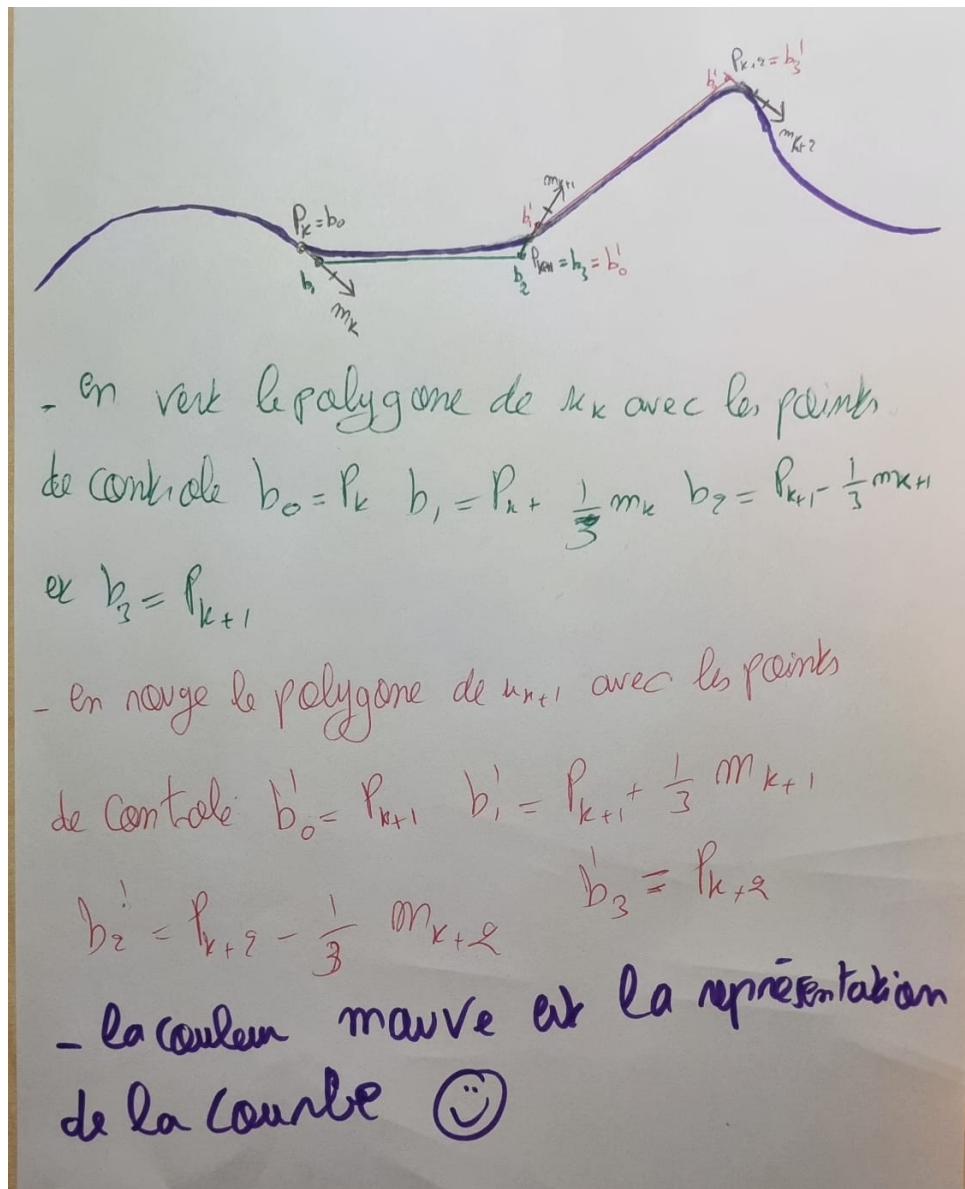 P_{k+2} = b'_3
b'_2
m_{k+2}
m_{k+1}
b'_1
P_k = b_0
P_{k+1} = b_3 = b'_0
b_1
b_2
m_k
- en vert le polygone de u_k avec les points
de controle b_0 = P_k b_1 = P_k + \frac{1}{3} m_k b_2 = P_{k+1} - \frac{1}{3} m_{k+1}
et b_3 = P_{k+1}
- en rouge le polygone de u_{k+1} avec les points
de controle b'_0 = P_{k+1} b'_1 = P_{k+1} + \frac{1}{3} m_{k+1}
b'_2 = P_{k+2} - \frac{1}{3} m_{k+2} b'_3 = P_{k+2}
- la couleur mauve est la représentation
de la courbe